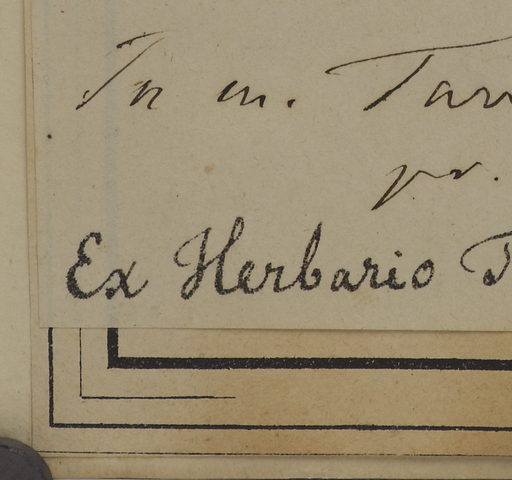 In m. Tarv
pr.
Ex Herbario